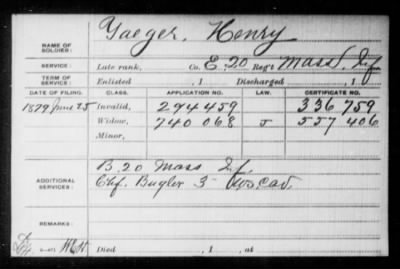 Yaeger, Henry
NAME OF SOLDIER:
SERVICE: Late rank, Co. E, 20 Reg't Mass. Inf.
TERM OF SERVICE: Enlisted , 1 Discharged , 1
DATE OF FILING. CLASS. APPLICATION NO. LAW. CERTIFICATE NO.
1879 June 25 Invalid, 294459 336759
Widow, 740068 J 557406
Minor,
B. 20 Mass Inf.
ADDITIONAL SERVICES: Chf. Bugler 3 Cav.
REMARKS:
Died , 1 , at